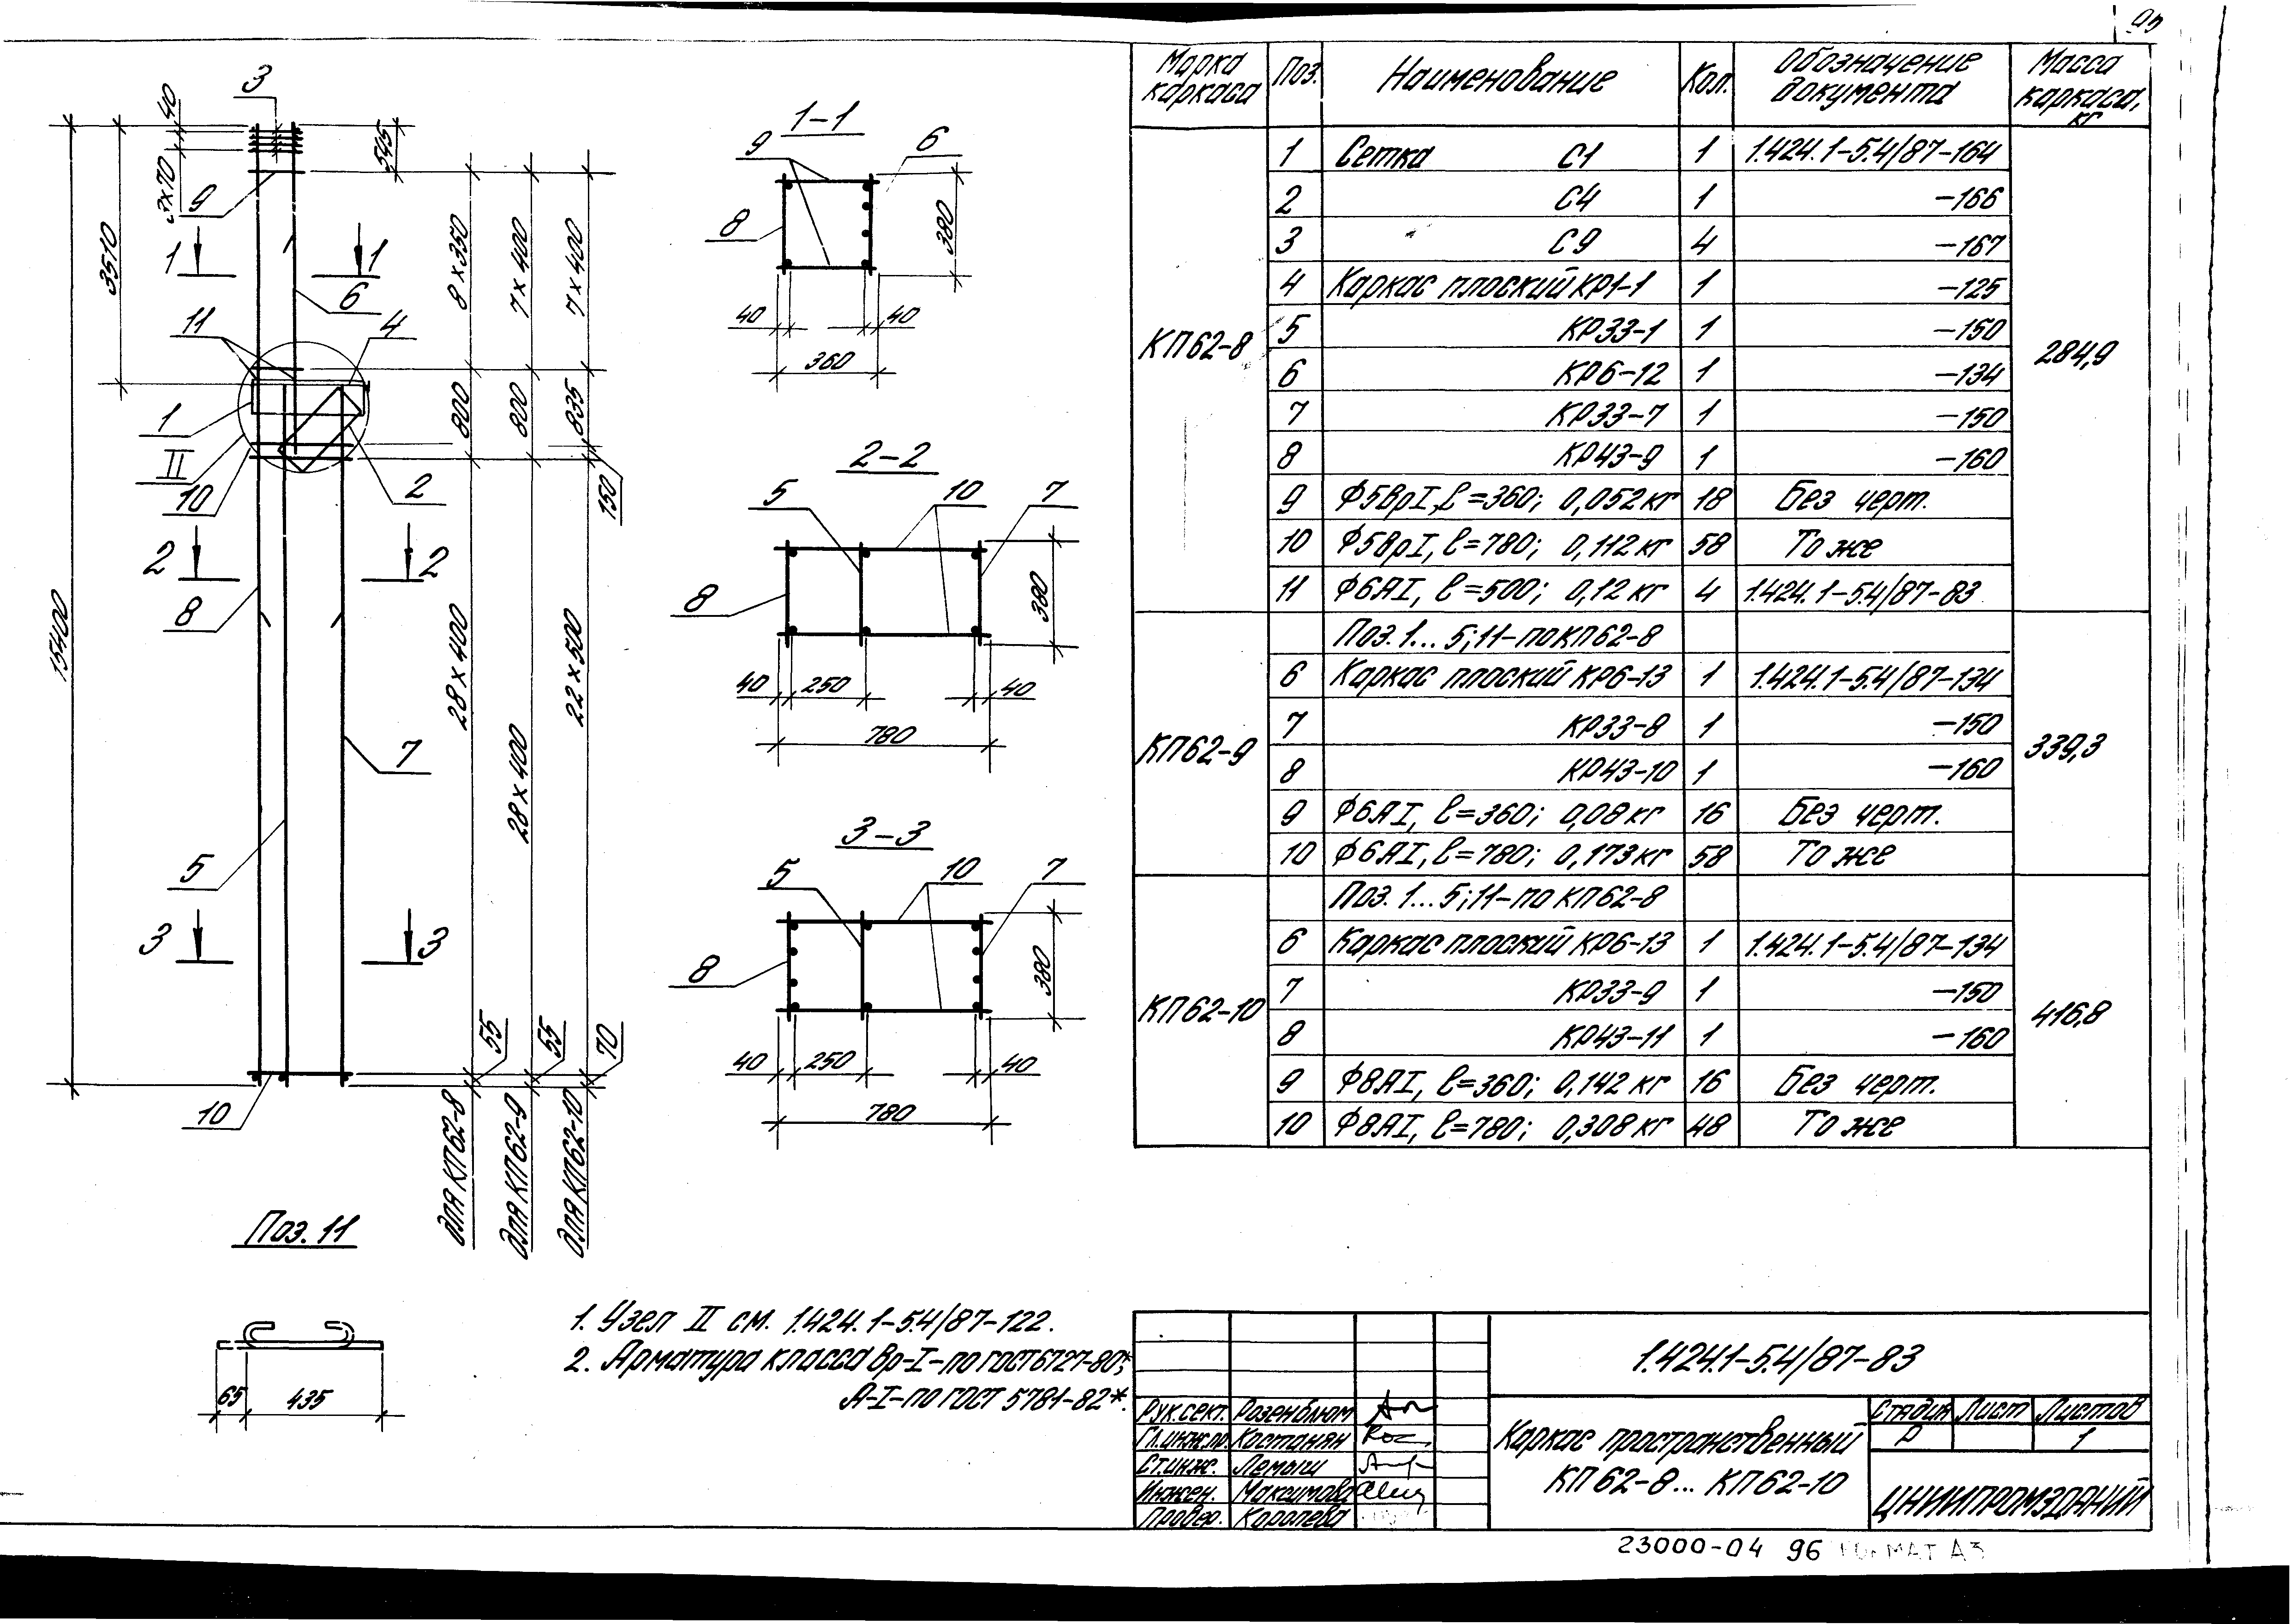 95
Марка каркаса Поз. Наименование Кол. Обозначение документа Масса каркаса, кг
КП62-8 284,9
1 Сетка С1 1 1.424.1-5.4/87-164
2 С4 1 -166
3 С9 4 -167
4 Каркас плоский КР1-1 1 -125
5 КР33-1 1 -150
6 КР6-12 1 -134
7 КР33-7 1 -150
8 КР43-9 1 -160
9 Ф5ВрI, ℓ=360; 0,052кг 18 Без черт.
10 Ф5ВрI, ℓ=780; 0,112кг 58 То же
11 Ф6АI, ℓ=500; 0,12кг 4 1.424.1-5.4/87-83
КП62-9 339,3
Поз. 1...5; 11-по КП62-8
6 Каркас плоский КР6-13 1 1.424.1-5.4/87-134
7 КР33-8 1 -150
8 КР43-10 1 -160
9 Ф6АI, ℓ=360; 0,08кг 16 Без черт.
10 Ф6АI, ℓ=780; 0,173кг 58 То же
КП62-10 416,8
Поз. 1...5; 11-по КП62-8
6 Каркас плоский КР6-13 1 1.424.1-5.4/87-134
7 КР33-9 1 -150
8 КР43-11 1 -160
9 Ф8АI, ℓ=360; 0,142кг 16 Без черт.
10 Ф8АI, ℓ=780; 0,308кг 48 То же
3
40
3х70
545
3510
15400
9
1 1
6
11
4
1
II
10
2
2 2
8
7
5
3 3
10
8х350
800
28х400
55
для КП62-8
7х400
800
28х400
55
для КП62-9
7х400
835
150
22х500
70
для КП62-10
1-1
9 6
8
380
40 40
360
2-2
5 10 7
8
380
40 250 40
780
3-3
5 10 7
8
380
40 250 40
780
Поз. 11
65 435
1. Узел II см. 1.424.1-5.4/87-122.
2. Арматура класса Вр-I-по ГОСТ 6727-80*;
А-I-по ГОСТ 5781-82*.
1.424.1-5.4/87-83
Рук.сект. Розенблюм
Гл.инж.пр. Костанян
Ст.инж. Лемыш
Инжен. Максимова
Провер. Королева
Каркас пространственный
КП62-8... КП62-10
Стадия Лист Листов
Р 1
ЦНИИПРОМЗДАНИЙ
23000-04 96 ФОРМАТ А3